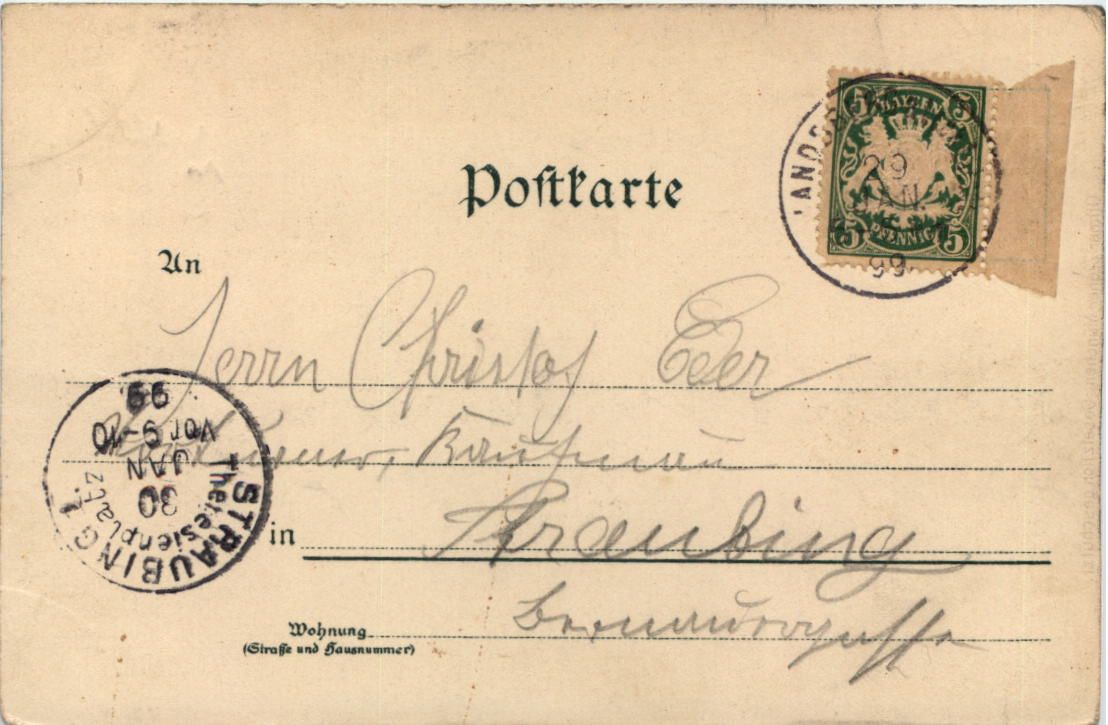 Postkarte
5 BAYERN 5
5 PFENNIG 5
29
JAN.
99
An
Herrn Christof Eder
Kaufmann
in Straubing
Wohnung Bernauergasse
(Straße und Hausnummer)
STRAUBING 1
Theresienplatz
30
JAN
Vor 9-10
99.